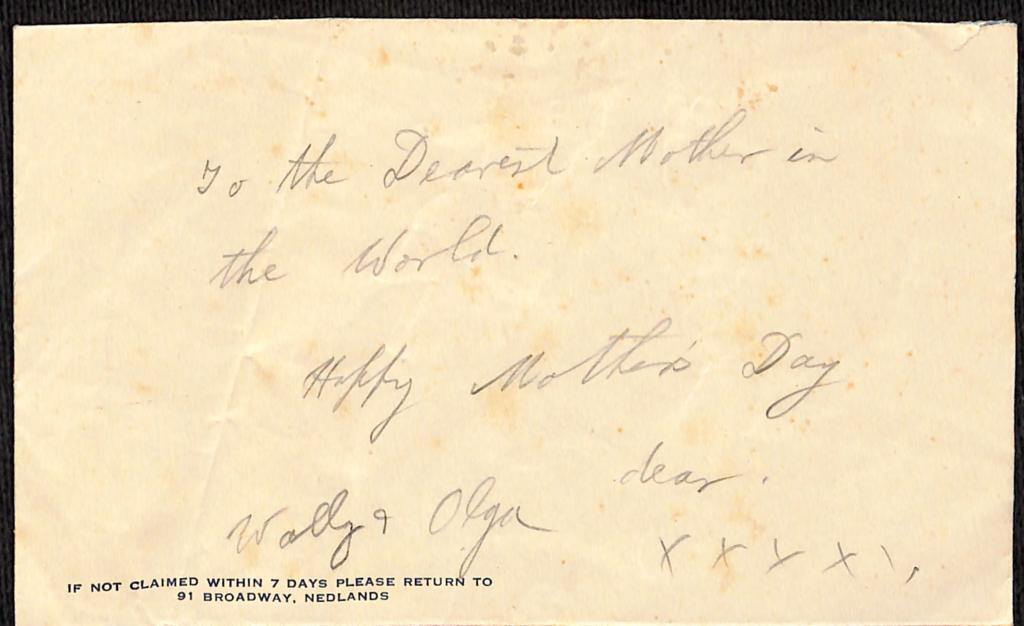 To the Dearest Mother in
the World.
Happy Mother's Day
dear.
Wally & Olga
X X X X
IF NOT CLAIMED WITHIN 7 DAYS PLEASE RETURN TO
91 BROADWAY, NEDLANDS